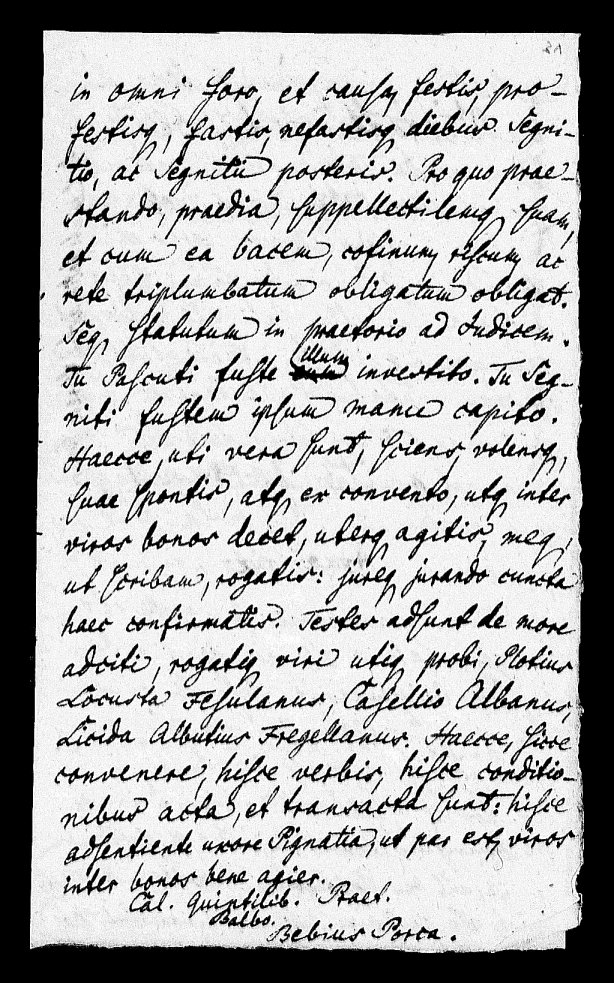 in omni foro, et causa, festis, pro-
festisq, fastis, nefastisq diebus Segni-
tio, ac Segnitii posteris. Pro quo prae-
stando, praedia, suppellectilemq suam,
et cum ea bacem, cofinum, riscum, ac
rete triplumbatum obligatum obligat.
Seq, statutum in praetorio ad Iudicem.
Tu Pascuti fuste illum investito. Tu Seg-
niti fustem ipsum manu capito.
Haecce, uti vera sunt, sciens, volensq,
suae spontis, atq, ex convento, utq, inter
viros bonos decet, uterq agitis, meq,
ut scribam, rogatis: jureq jurando cuncta
haec confirmatis. Testes adsunt de more
adciti, rogatiq viri utiq probi, Plotius
Locusta Fesulanus, Casellio Albanus,
Licida Albutius Fregellanus. Haecce, sicce
convenere, hisce verbis, hisce conditio-
nibus acta, et transacta sunt: hisce
adsentiente uxore Pignatia, ut par est, viros
inter bonos bene agier.
Cal. Quintilib. Praet.
Balbo.
Bebius Porca.